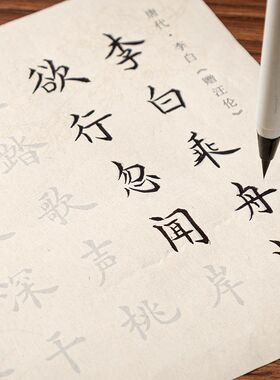 唐代·李白《赠汪伦》
李白乘舟
欲行忽闻岸
踏歌声桃
深千